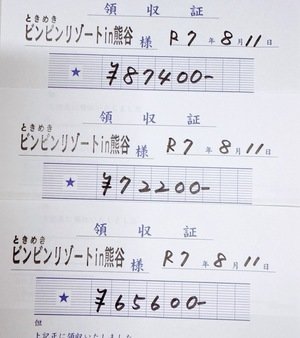 領収証
ときめき
ビンビンリゾートin熊谷 様 R7年8月11日
★ ¥87400-
領収証
ときめき
ビンビンリゾートin熊谷 様 R7年8月11日
★ ¥72200-
領収証
ときめき
ビンビンリゾートin熊谷 様 R7年8月11日
★ ¥65600-
但
上記正に領収いたしました